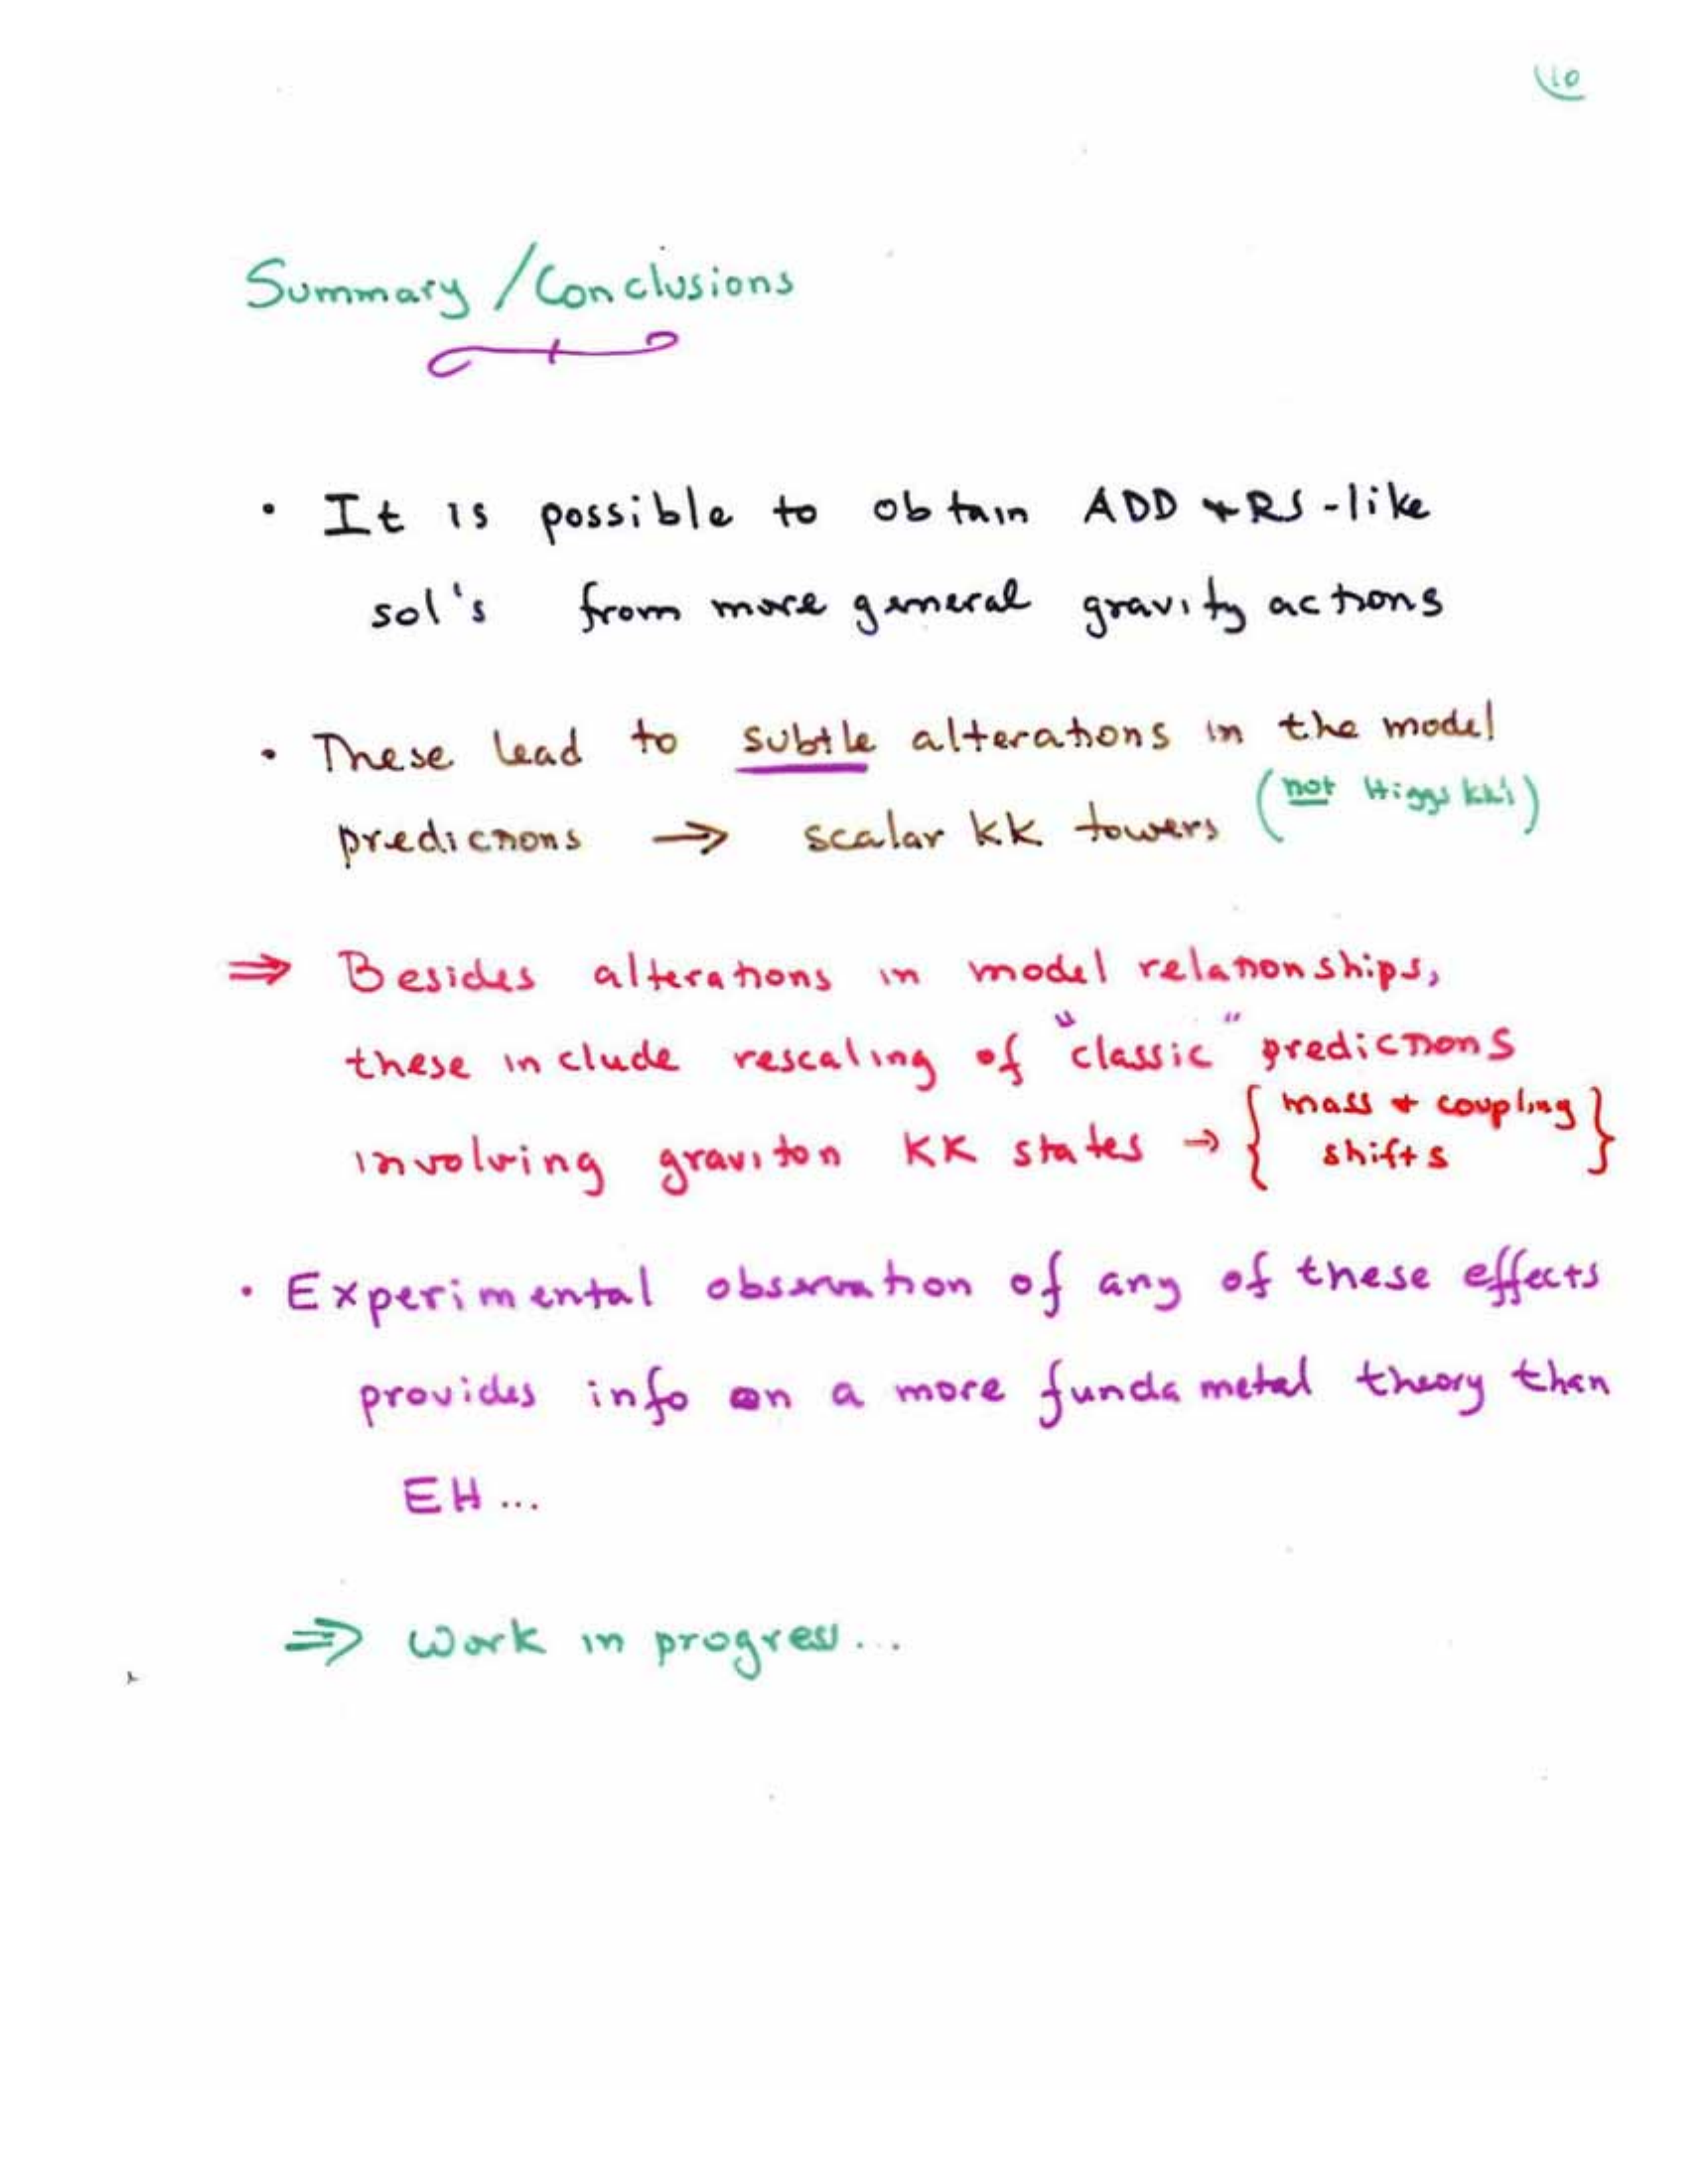 10
Summary/Conclusions
• It is possible to obtain ADD + RS-like
sol's from more general gravity actions
• These lead to subtle alterations in the model
(not Higgs KK's)
predictions → scalar KK towers
⇒ Besides alterations in model relationships,
these include rescaling of "classic" predictions
involving graviton KK states → { mass + coupling
shifts }
• Experimental observation of any of these effects
provides info on a more fundametal theory than
EH...
⇒ Work in progress...